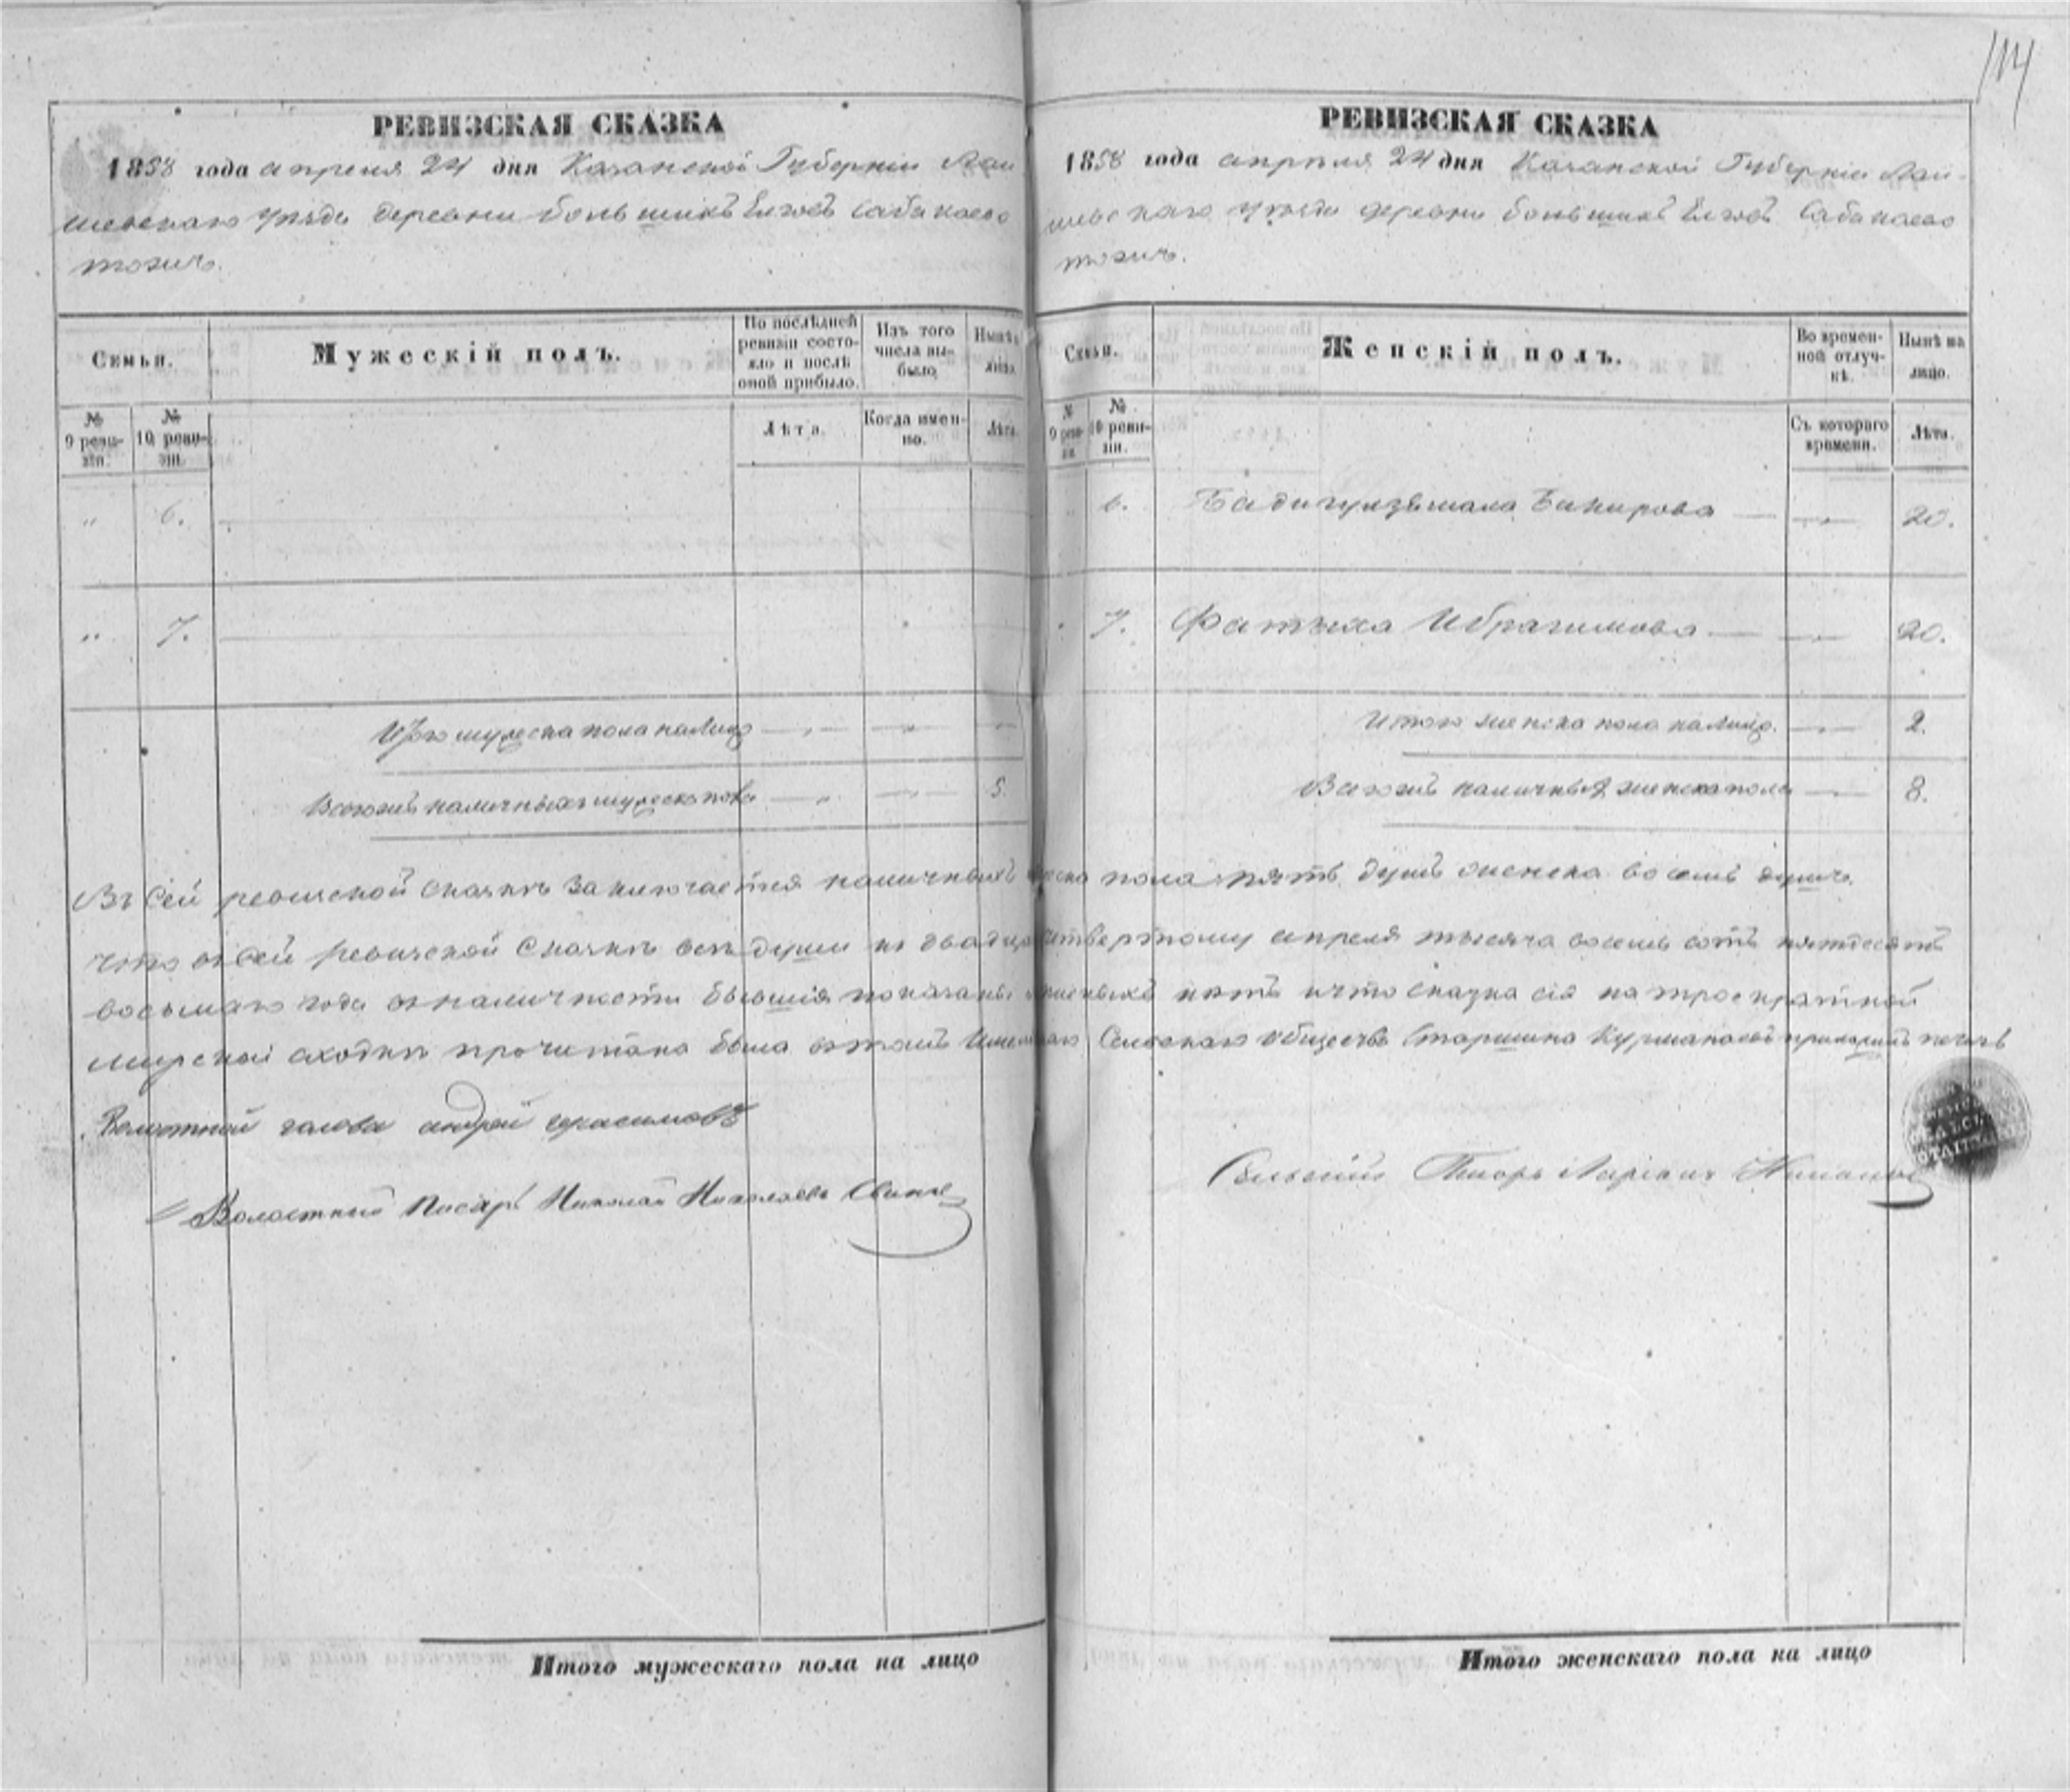 114
РЕВИЗСКАЯ СКАЗКА
1858 года апреля 24 дня Казанской Губернiи Лаи
шевскаго уѣзда деревни большихъ Елгов Сабакаево
тожъ.
Семьи.
Мужескій полъ.
По послѣдней ревизіи состояло и послѣ оной прибыло.
Изъ того числа выбыло.
Нынѣ на лицо.
№ 9 ревизіи.
№ 10 ревизіи.
Лѣта.
Когда именно.
Лѣта.
" 6.
" 7.
Итого мужеска пола налицо
Всего наличныхъ мужеска пола 5.
РЕВИЗСКАЯ СКАЗКА
1858 года апрѣля 24 дня Казанской Губернiи Лаи-
шевскаго уѣзда деревни большихъ Елгов Сабакаево
тожъ.
Семьи.
Женскій полъ.
Во временной отлучкѣ.
Нынѣ на лицо.
№ 9 ревизіи.
№ 10 ревизіи.
Съ котораго времени.
Лѣта.
6. Бакирова 20.
7. Ибрагимова 20.
Итого женска пола налицо. 2.
наличныхъ женска пола 8.
Въ сей ревизской сказкѣ заключается наличныхъ пола пять душъ женска восемь душъ.
Что в сей ревизской сказкѣ всѣ души по апреля тысяча восемь сотъ пятдесятъ
восьмаго года в наличности бывшiя показаны нѣтъ и что сказка сiя на троекратной
мирской сходкѣ прочитана была в томъ Сельскаго Общества Старшина Курмакаевъ печать
Волостной голова андрей герасимовъ
Волостный Писарь Николай Николаевъ
Сельскiй
Итого мужескаго пола на лицо
Итого женскаго пола на лицо